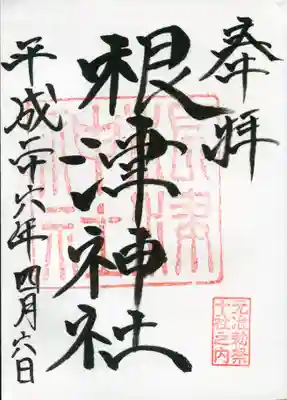 奉拝
根津神社
平成二十六年四月六日
根津神社
元准勅祭
十社之内